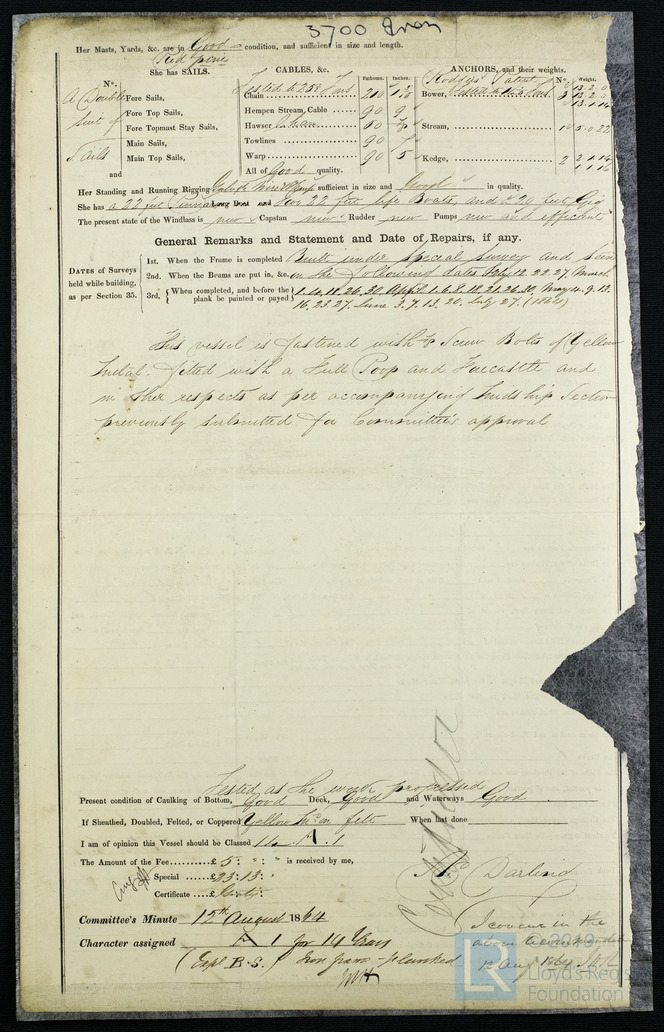 3700 Iron
Her Masts, Yards, &c. are in Good condition, and sufficient in size and length.
Red Pine
She has SAILS.
CABLES, &c.
Fathoms.
Inches.
ANCHORS, and their weights.
Rodgers Patent
Nº.
Weight.
Nº.
A Double
suit of
Sails
and
Fore Sails,
Fore Top Sails,
Fore Topmast Stay Sails,
Main Sails,
Main Top Sails,
Tested to
Chain
Hempen Stream Cable 90 9
Hawser Chain
Towlines 90
Warp 90 5
All of Good quality.
Bower, Tested to
Stream, 1 5.0.22
Kedge, 2 2.1.14
1.1.16
Her Standing and Running Rigging sufficient in size and Good in quality.
She has a 22 feet Pinnace Long Boat and Two 22 feet life Boats, and a 20 feet Gig
The present state of the Windlass is new Capstan new Rudder new Pumps new and efficient
General Remarks and Statement and Date of Repairs, if any.
DATES of Surveys
held while building,
as per Section 35.
1st. When the Frame is completed Built under special survey and seen
2nd. When the Beams are put in, &c. on the following dates Feby 12. 22. 27. March
3rd. { When completed, and before the plank be painted or payed } 1. 4. 18. 26. 30. April 1. 6. 8. 18. 21. 26. 30. May 4. 9. 13.
16. 23. 27. June 3. 7. 13. 20. July 27. (1864)
This vessel is fastened with Screw Bolts of Yellow
Metal. fitted with a Full Poop and Forecastle and
in other respects as per accompanying Midship Section
previously submitted for Committee's approval
Tested as the work progressed
Present condition of Caulking of Bottom, Good Deck, Good and Waterways Good
If Sheathed, Doubled, Felted, or Coppered Yellow M. on felt When last done
I am of opinion this Vessel should be Classed 14 A 1
The Amount of the Fee £ 5 : : is received by me,
Special £ 23 : 13 :
Certificate £ Gratis
Darling
Committee's Minute 12th August 1864
Character assigned A 1 for 14 Years
(Expl B.S.) Iron frame - planked
I concur in the
above
12 Aug 1864
© 2019
Lloyd's Register
Foundation
LR